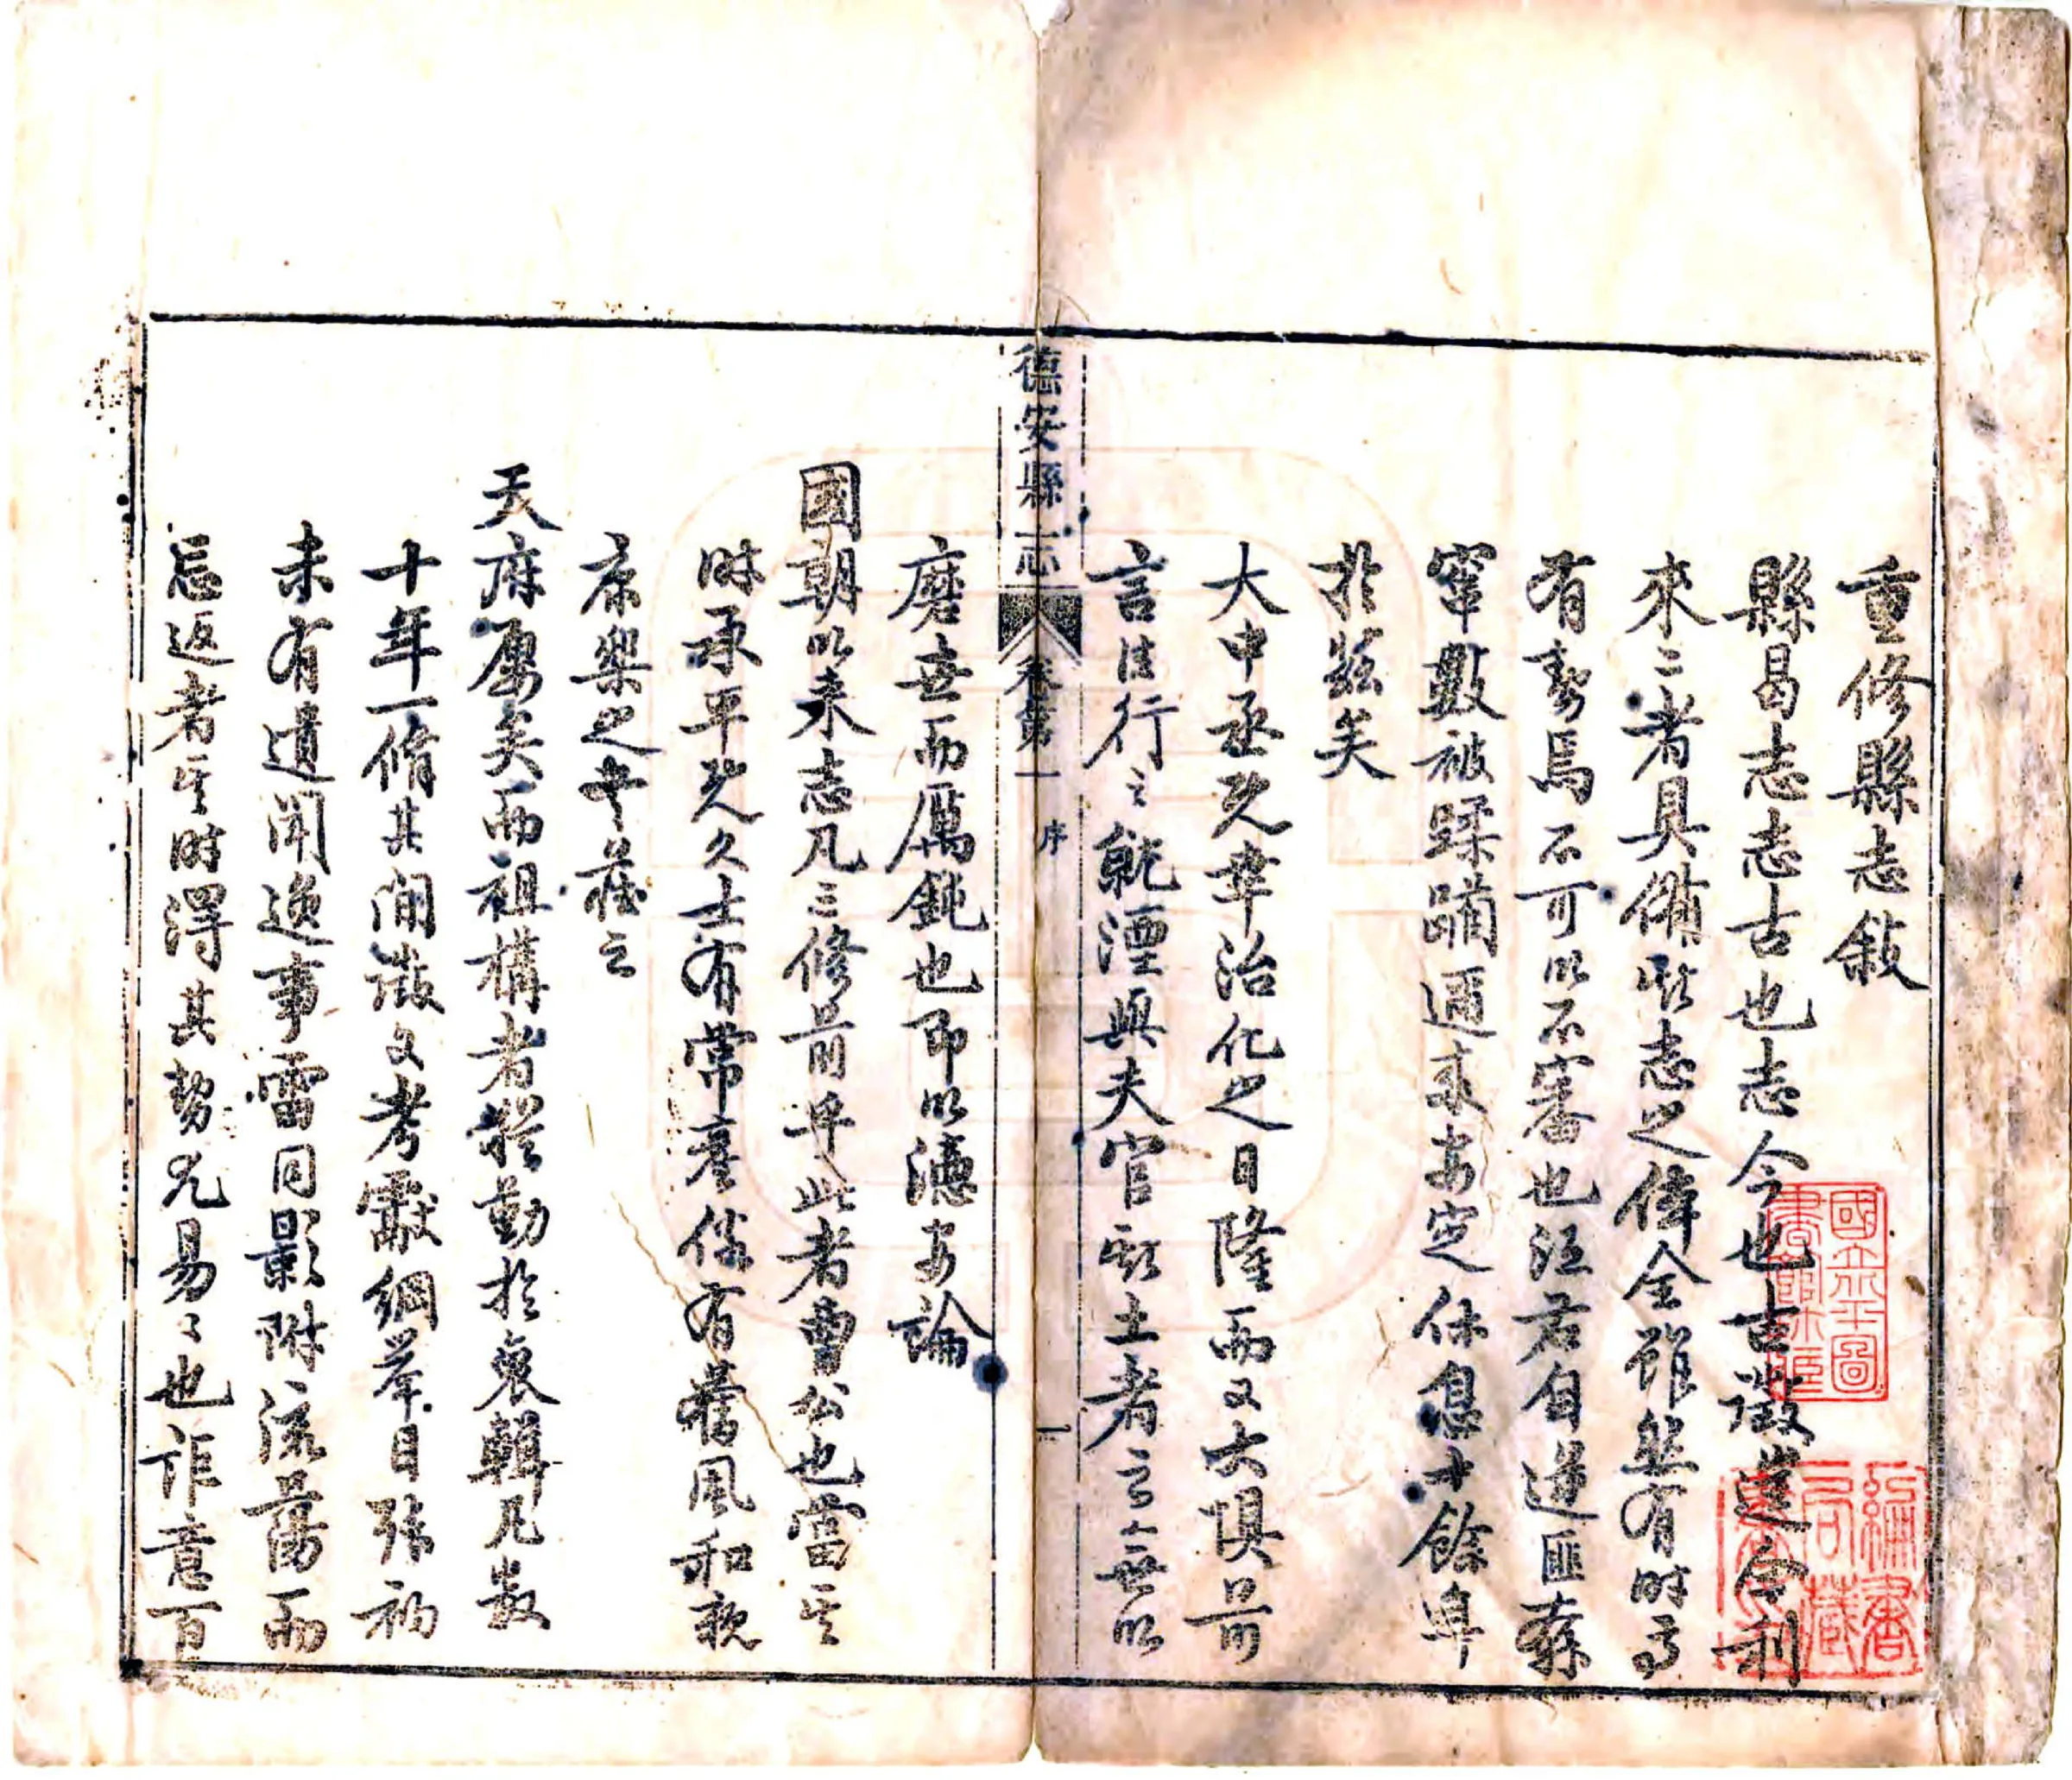 重修縣志敍
縣曷志志古也志今也古徵進今利
來二者具備斯志之偉全雖然有時焉
有勢焉不可以不審也江右自逆匪
窜數被蹂躪邇來安定休息十餘年
於茲矣
大中丞先幸治化之日隆而又大惧前
言往行之就湮與夫官斯土者之無以
磨世而厲鈍也即以德安論
國朝以來志凡三修前乎此者曹公也當其
時承平既久士有常產俗有舊風和親
康樂之中藏之
天府屢矣而祖構者勤於裒輯凡數
十年一脩其間徵文考獻綱舉目張初
未有遺聞逸事雷同影附流蕩而
忘返者其時得其勢尤易易也詎意百
德安縣志 卷第一 序 一
國立北平圖書館